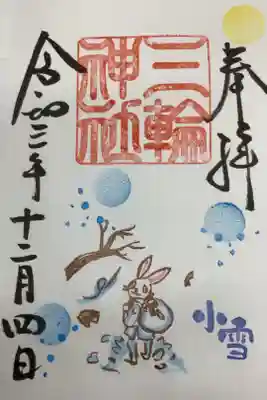 奉拝
三輪
神社
小雪
令和三年十二月四日